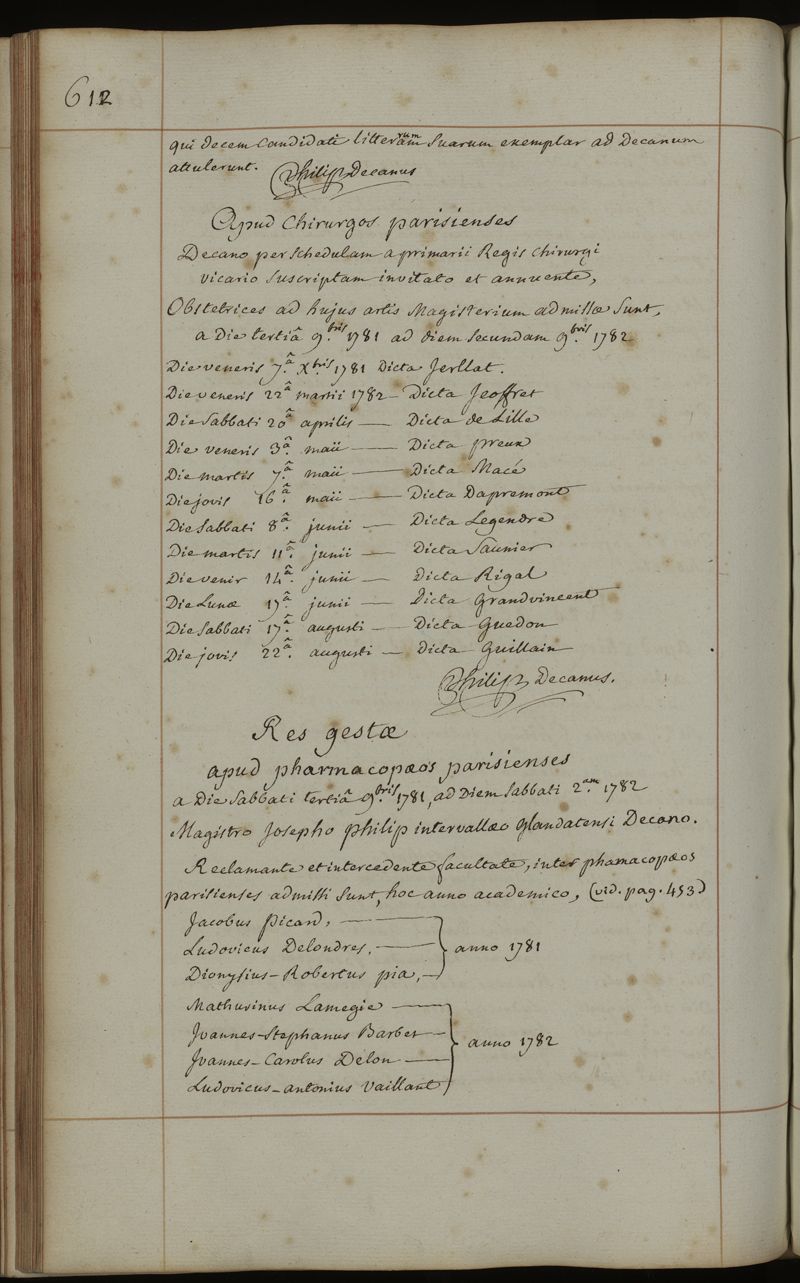 612
qui decem candidati litterarum suarum exemplar ad Decanum
attulerunt. Philip Decanus
Apud Chirurgos parisienses
Decano per schedulam a primarii Regis chirurgi
vicario suscriptam invitato et annuente,
Obstetrices ad hujus artis Magisterium admissæ sunt,
a Die tertiâ 9.bris 1781 ad diem secundam 9.bris 1782
Die veneris 7.â X.bris 1781 Dicta Jerllat.
Die veneris 22â martii 1782 - Dicta Jeoffret
Die Sabbati 20â aprilis — Dicta de Lille
Die veneris 3.â maii — Dicta preux
Die martis 7.â maii — Dicta Macé
Die jovis 16.â maii — Dicta Dapremont
Die Sabbati 8.â junii — Dicta Legendre
Die martis 11.â junii — Dicta Saunier
Die venir 14.â junii — Dicta Rigal
Die Lunæ 17.â junii — Dicta Grandvincent
Die Sabbati 17.â augusti — Dicta Guedon
Die jovis 22.â augusti — Dicta Guillain
Philip Decanus.
Res gestæ
apud pharmacopæos parisienses
a Die Sabbati tertiâ 9.bris 1781, ad Diem Sabbati 2.am 1782
Magistro Josepho philip intervallæo Glandatensi Decano.
Reclamante et intercedente facultate, inter phamacopæos
parisienses admissi sunt, hoc anno academico, (vid. pag. 453)
Jacobus Picard, —
Ludovicus Delondres, — } anno 1781
Dionysius-Robertus pia, —
Mathurinus Lamegie —
Joannes-Stephanus Barbet — } anno 1782
Joannes-Carolus Delon —
Ludovicus-antonius Vaillant